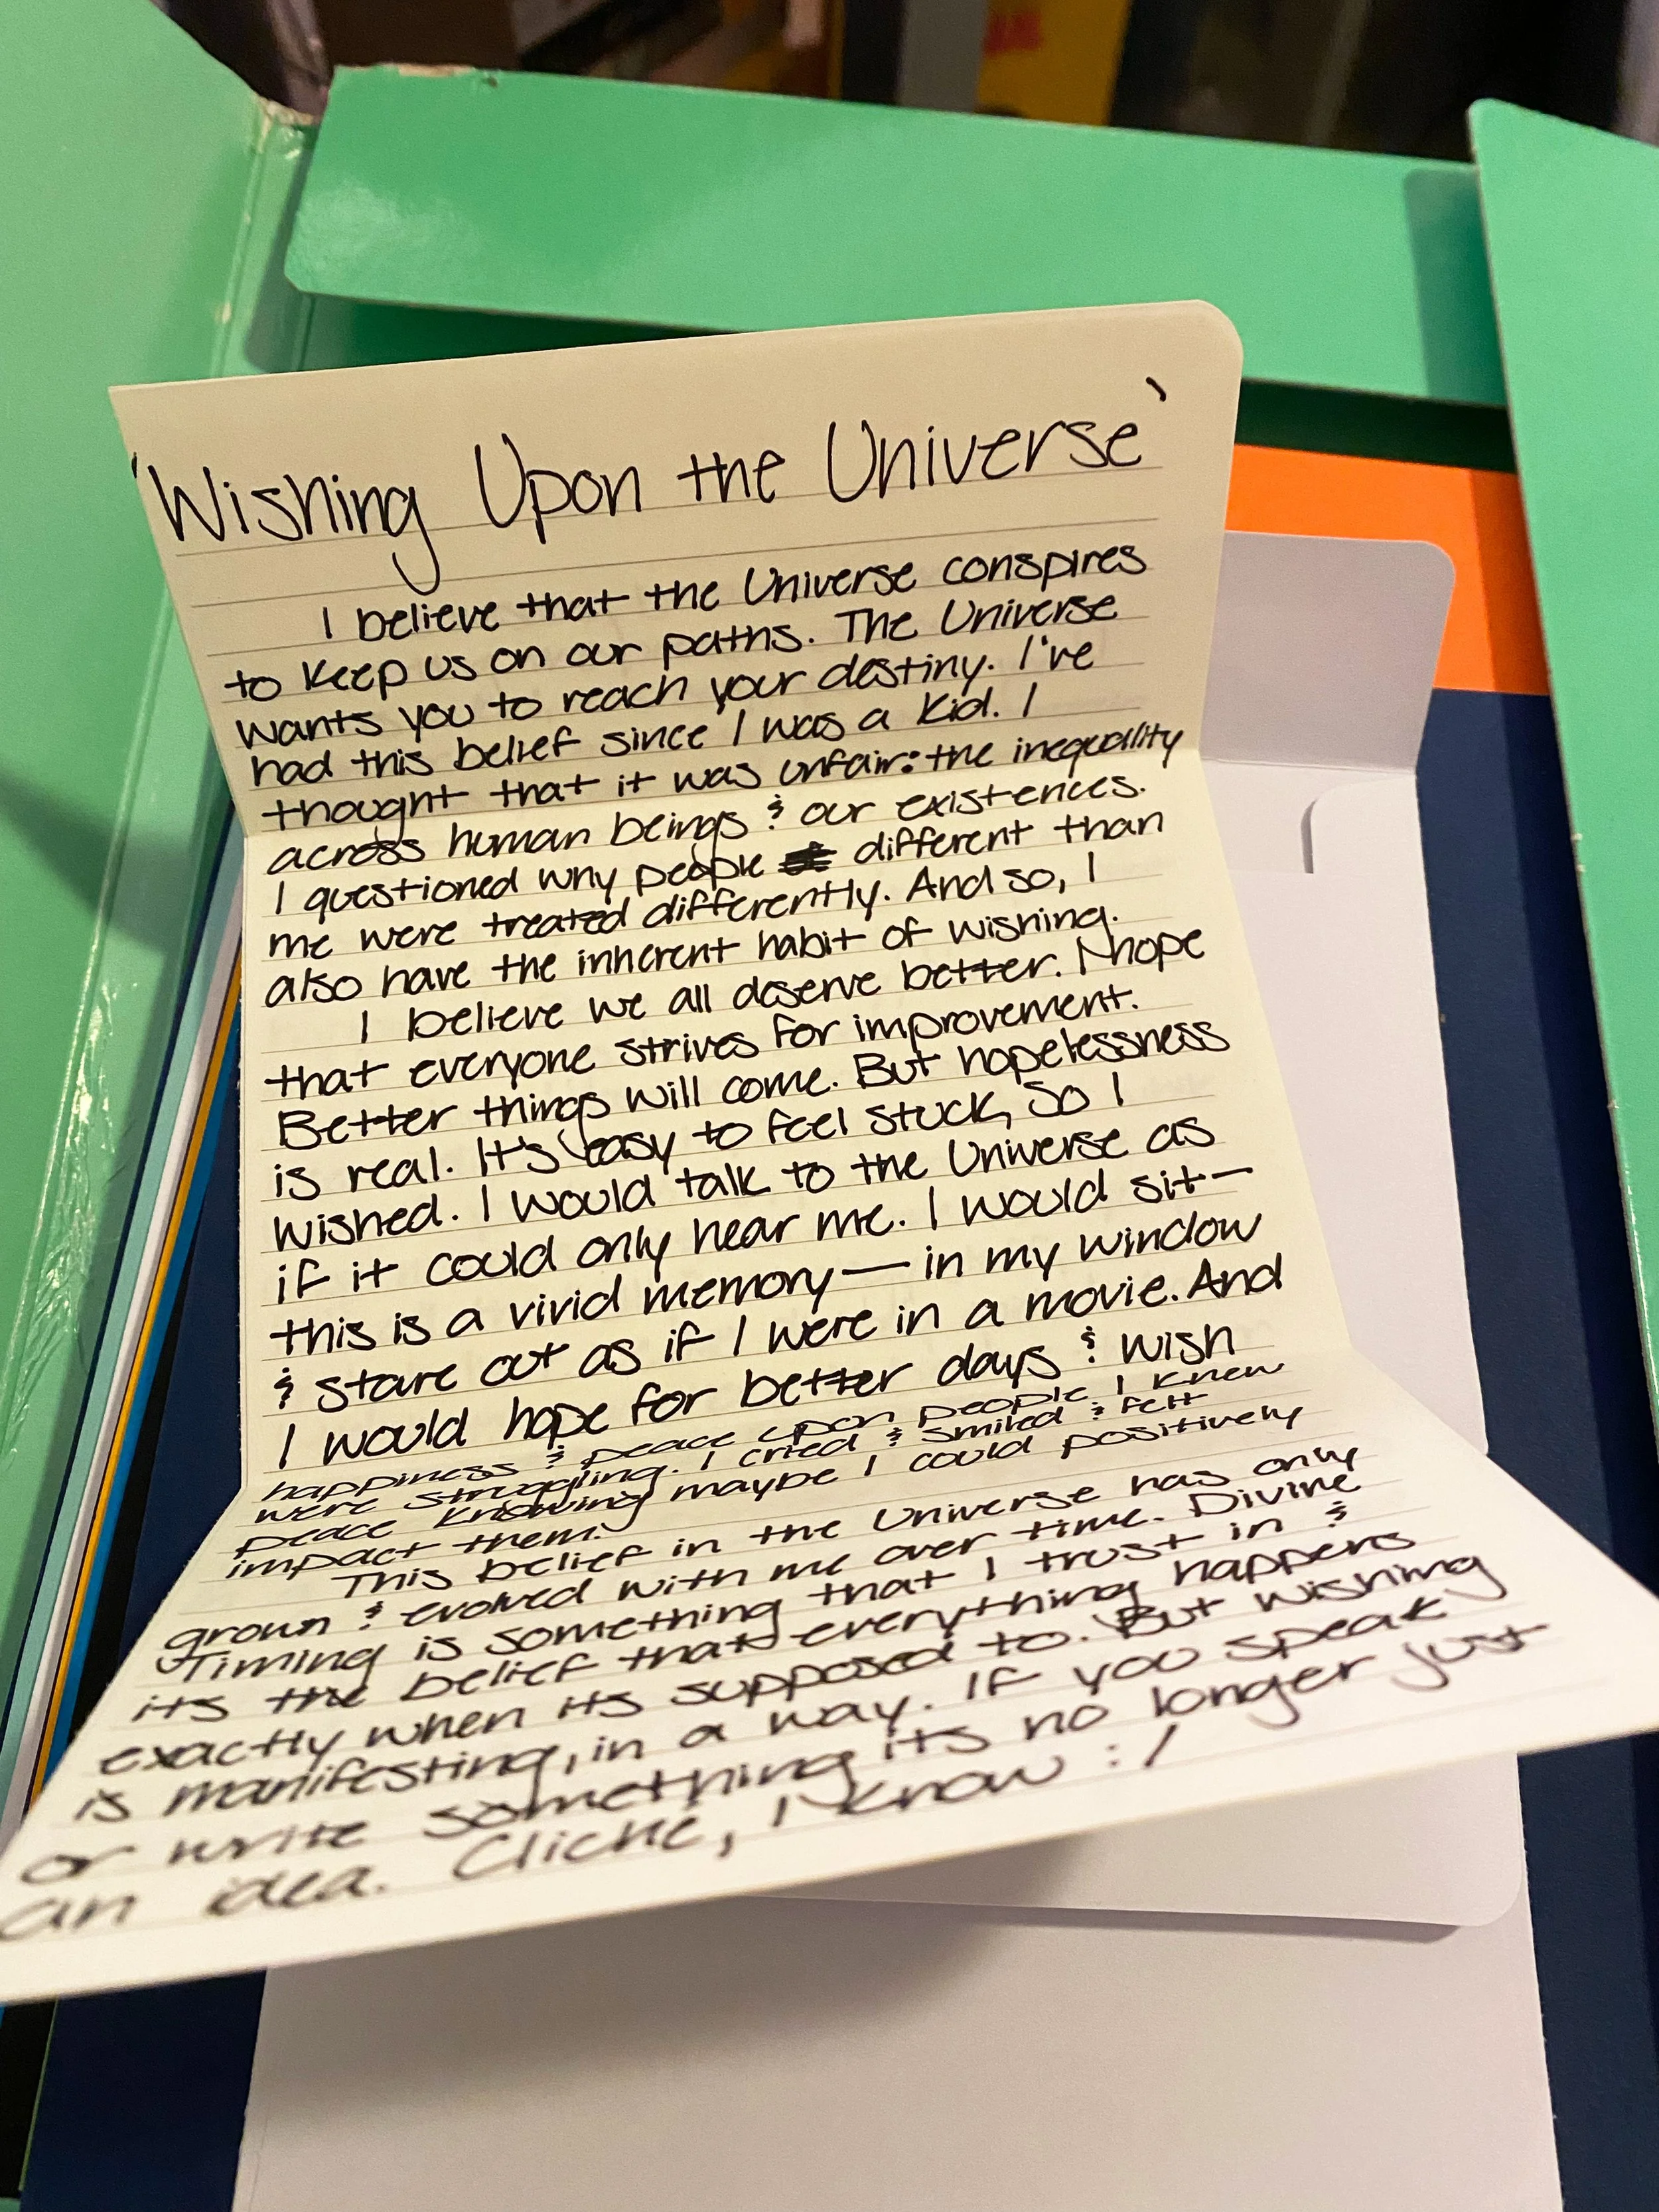 'Wishing Upon the Universe'
I believe that the Universe conspires
to keep us on our paths. The Universe
wants you to reach your destiny. I've
had this belief since I was a kid. I
thought that it was unfair: the inequality
across human beings & our existences.
I questioned why people different than
me were treated differently. And so, I
also have the inherent habit of wishing.
I believe we all deserve better. I hope
that everyone strives for improvement.
Better things will come. But hopelessness
is real. It's easy to feel stuck, so I
wished. I would talk to the Universe as
if it could only hear me. I would sit—
this is a vivid memory — in my window
& stare out as if I were in a movie. And
I would hope for better days & wish
happiness & peace upon people I knew
were struggling. I cried & smiled & felt
peace knowing maybe I could positively
impact them.
This belief in the Universe has only
grown & evolved with me over time. Divine
Timing is something that I trust in &
its the belief that everything happens
exactly when its supposed to. But wishing
is manifesting, in a way. If you speak
or write something its no longer just
an idea. Cliché, I know :/